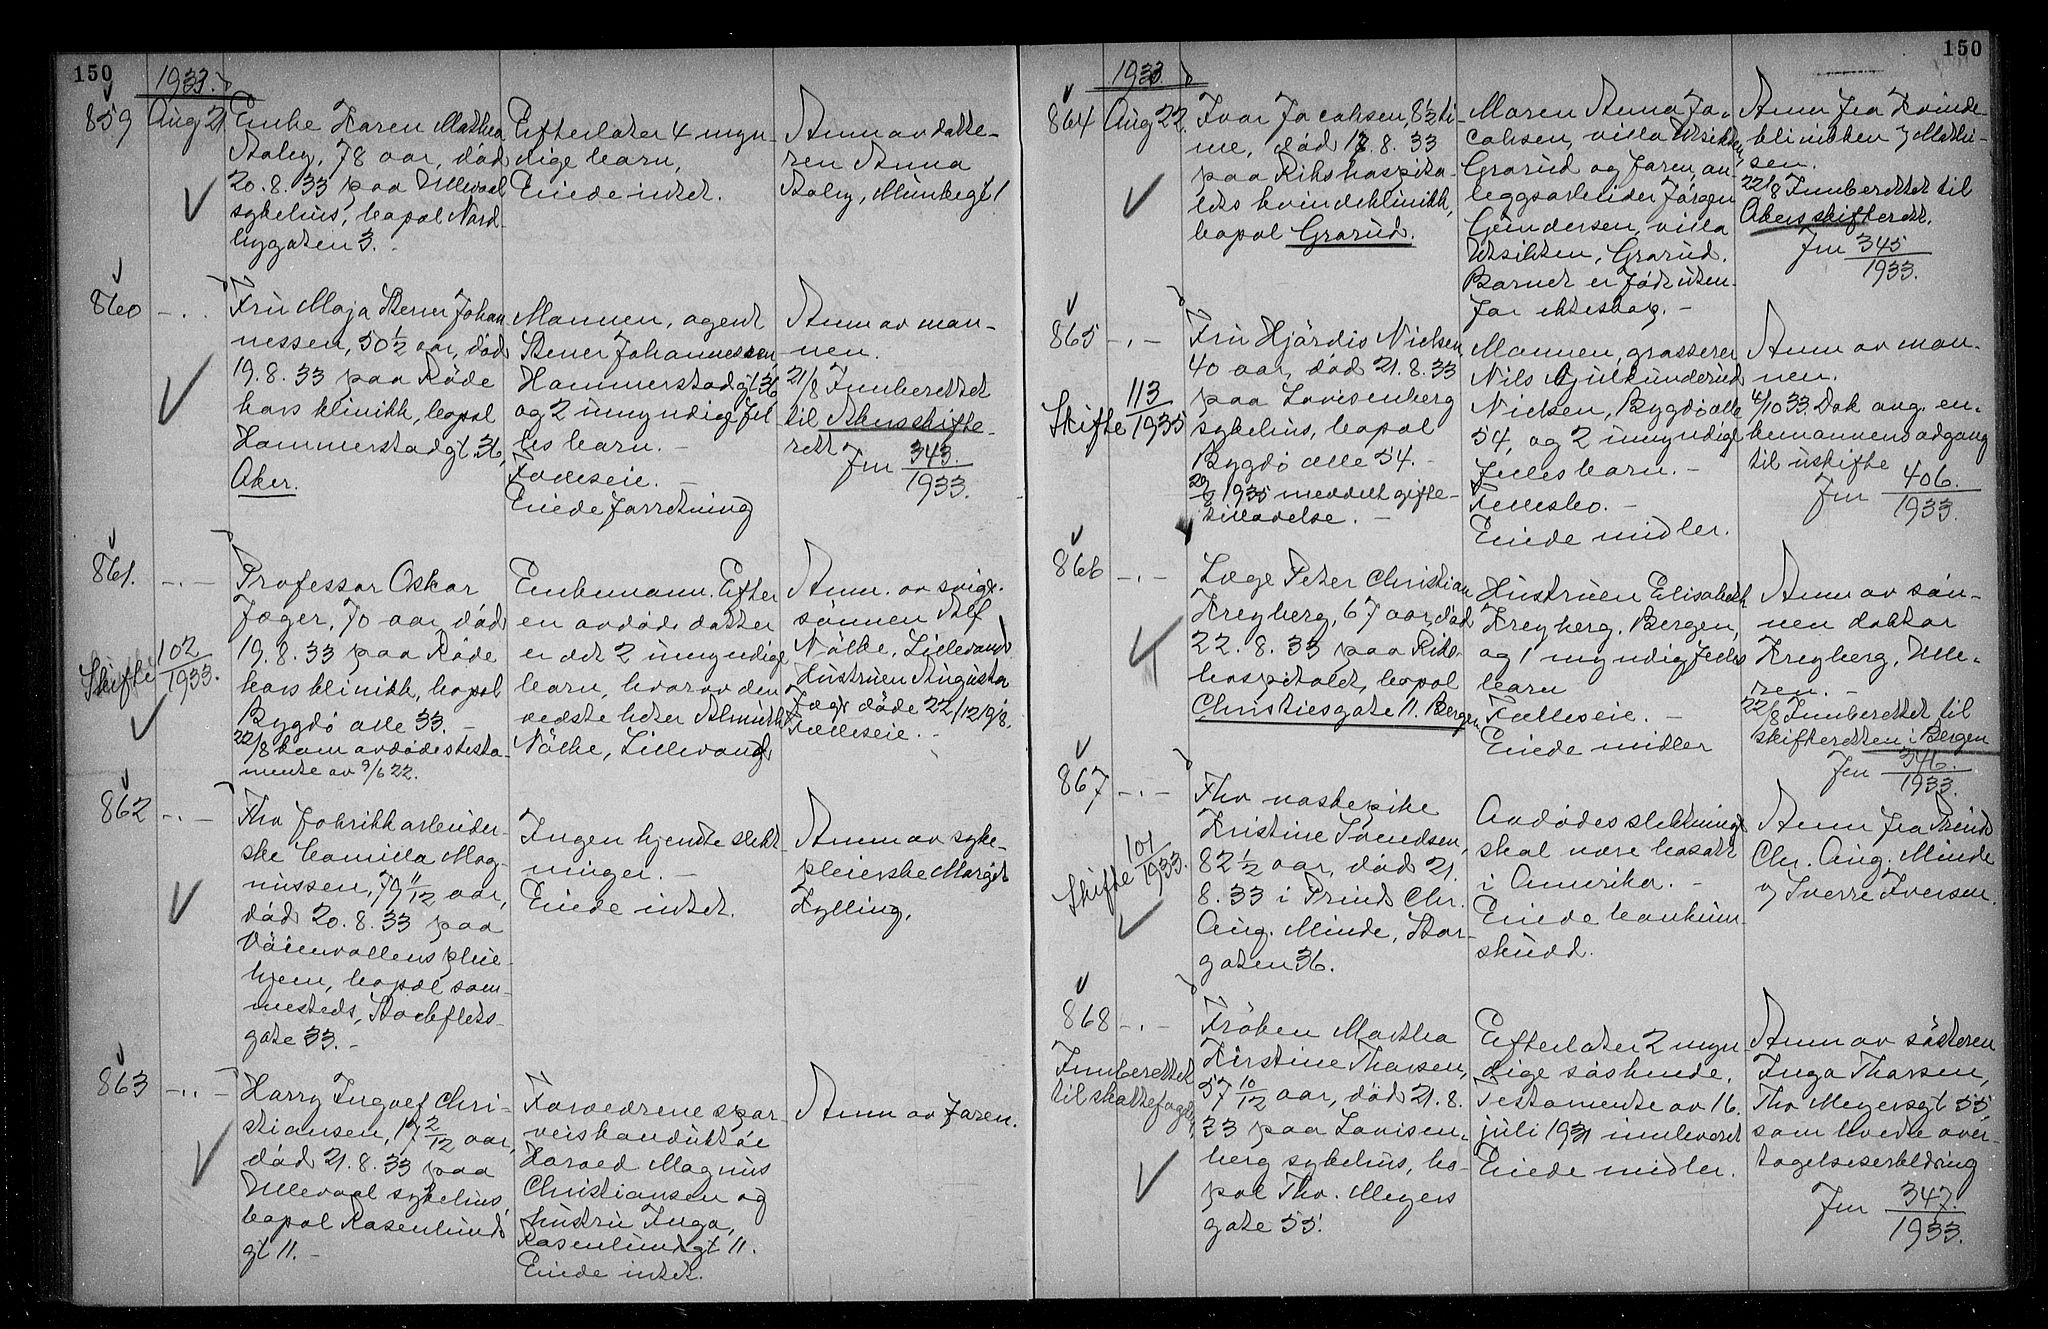 150
1933.
859
Aug 21
Enke Karen Mathea
Aaby, 78 aar, død
20.8.33 paa Ullevaal
sykehus, bopæl Nord-
bygaten 3.
Efterlater 4 myn-
dige barn,
Eiede intet.
Anm av datte-
ren Anna
Aaby, Munkegt 1
860
- . .
Fru Maja Stener Johan
nessen, 50 1/2 aar, død
19.8.33 paa Røde
kors klinikk, bopæl
Hammerstadgt. 36,
Aker.
Mannen, agent
Stener Johannessen,
Hammerstadgt 36
og 2 umyndige fel
les barn. -
Fælleseie. -
Eiede forretning
Anm av man-
nen.
21/8 Innberettet
til Akers skifte-
rett
Jnr 343.
1933.
861.
- . -
Skifte 102
1933.
Professor Oskar
Jæger, 70 aar, død
19.8.33 paa Røde
kors klinikk, bopæl
Bygdö alle 33. -
22/8 kom avdødes testa-
mente av 9/6 22.
Enkemann. Efter
en avdød datter
er det 2 umyndige
barn, hvorav den
eldste heter Almuth
Nölke, Lillevand
Anm. av svige.
sønnen Alf
Nölke, Lillevand
Hustruen Augusta
Jæger døde 22/12 1918.
Fælleseie. -
862
- . . -
Fhv fabrikkarbeider-
ske Camilla Mag-
nussen, 79 11/12 aar,
död 20.8.33 paa
Vöienvollens pleie-
hjem, bopæl sam-
mesteds, Stockfleths-
gate 33. -
Ingen kjendte slekt-
ninger. -
Eiede intet.
Anm av syke-
pleierske Margit
Kylling.
863
- . . -
Harry Ingolf Chri-
stiansen, 17 2/12 aar,
död 21.8.33 paa
Ullevaal sykehus,
bopæl Rosenlunds
gt 11. -
Forældrene spor
veiskonduktör
Harald Magnus
Christiansen og
hustru Inga,
Rosenlundgt 11.
Eiede intet.
Anm av faren.
150
1933
864
Aug 22.
Ivar Jacobsen, 8 1/2 ti-
me, död 18.8.33
paa Rikshospita-
lets kvindeklinikk,
bopæl Grorud.
Maren Anna Ja-
cobsen, villa Utsikten,
Grorud og faren, an
leggsarbeider Jörgen
Gundersen, villa
Utsikten, Grorud.
Barnet er född uten-
for ekteskap. -
Anm fra Kvinde-
klinikken v/ Mathi-
sen.
22/8 Innberettet til
Akers skifterett.
Jnr 345
1933.
865
- . -
Skifte 113
1935
Fru Hjördis Nielsen,
40 aar, död 21.8.33
paa Lovisenberg
sykehus, bopæl
Bygdö alle 54. -
1935 meddelt gifte-
tilladelse. -
Mannen, grosserer
Nils
Nielsen, Bygdö alle
54, og 2 umyndige
felles barn. -
Fellesbo. -
Eiede midler.
Anm av man-
nen.
4/10 33. Dok ang. en-
kemannens adgang
til uskifte
Jnr 406.
1933.
866
- . -
Læge Peter Christian
Kreyberg, 67 aar, död
22.8.33 paa Riks-
hospitalet, bopæl
Christiesgate 11. Bergen
Hustruen Elisabeth
Kreyberg. Bergen,
og 1 myndig felles
barn
Fælleseie. -
Eiede midler
Anm av søn-
nen doktor
Kreyberg, Ulle-
ren. -
22/8 Innberettet til
skifteretten i Bergen
Jnr 346.
1933.
867
- . -
Skifte 101
1933.
Fhv vaskepike
Kristine Svendsen,
82 1/2 aar, död 21.
8.33 i Prinds Chr.
Aug. Minde, Stor-
gaten 36.
Avdödes slektninge
skal være bosatt
i Amerika. -
Eiede bankinn-
skudd.
Anm fra Prinds
Chr. Aug. Minde
v/ Sverre Iversen.
868
- . -
Innberettet
til skattefogden,
Fröken Martha
Kirstine Thorsen,
57 10/12 aar, död 21.8.
33 paa Lovisen-
berg sykehus, bo-
pæl Thv. Meyers
gate 55.
Efterlater 2 myn
dige söskende.
Testamente av 16.
juli 1931 innleveret
Eiede midler.
Anm av sösteren
Inga Thorsen,
Thv Meyersgt 55,
som hvede over-
tagelseserklæring
Jnr 347.
1933.